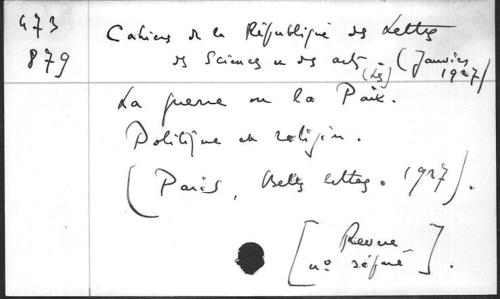 473
879
Cahiers de la République des Lettres
des Sciences et des arts. (Janvier
(Les)
1927)
La guerre ou la Paix.
Politique et religion.
(Paris, Belles lettres. 1927).
[Revue
n° séparé].